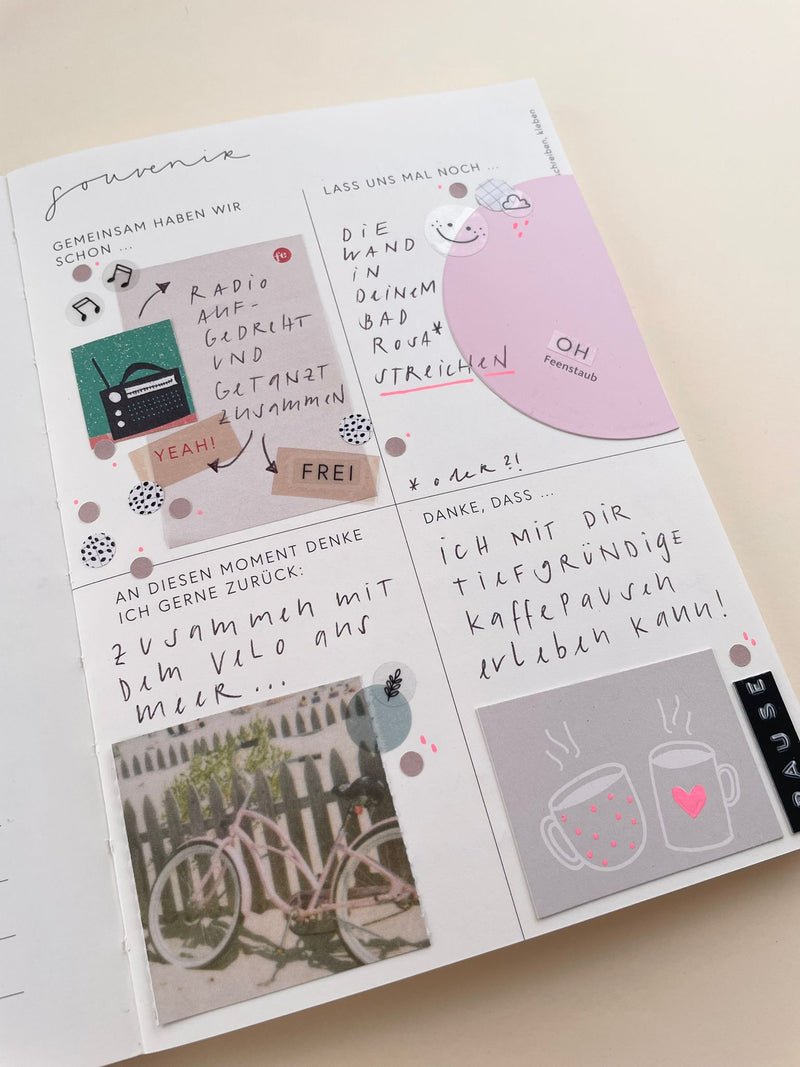 souvenir
GEMEINSAM HABEN WIR
SCHON ...
fe
RADIO
AUF-
GEDREHT
UND
GETANZT
ZUSAMMEN
YEAH!
FREI
LASS UNS MAL NOCH ...
schreiben, kleben
DIE
WAND
IN
DEINEM
BAD
ROSA*
STREICHEN
OH
Feenstaub
* oder ?!
AN DIESEN MOMENT DENKE
ICH GERNE ZURÜCK:
ZUSAMMEN MIT
DEM VELO ANS
MEER...
DANKE, DASS ...
ICH MIT DIR
TIEFGRÜNDIGE
KAFFEPAUSEN
ERLEBEN KANN!
PAUSE